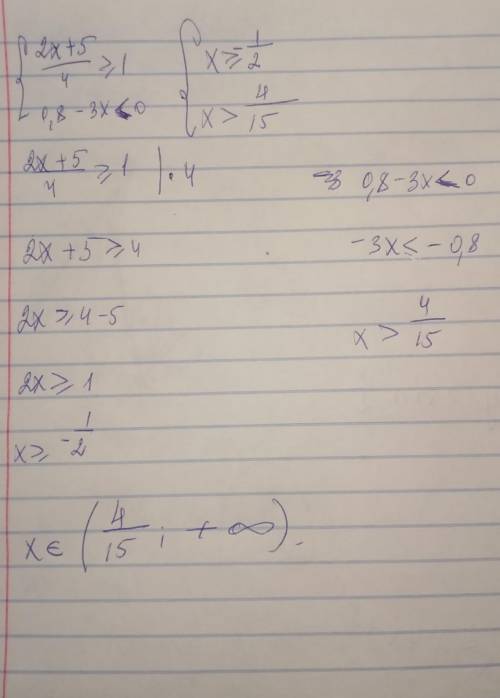 { (2x+5)/4 ≥ 1   { x ≥ -1/2
0,8 - 3x < 0   x > 4/15
(2x+5)/4 ≥ 1 | · 4
2x + 5 ≥ 4
2x ≥ 4 - 5
2x ≥ 1
x ≥ -1/2
0,8 - 3x < 0
-3x ≤ - 0,8
x > 4/15
x ∈ (4/15 ; + ∞).